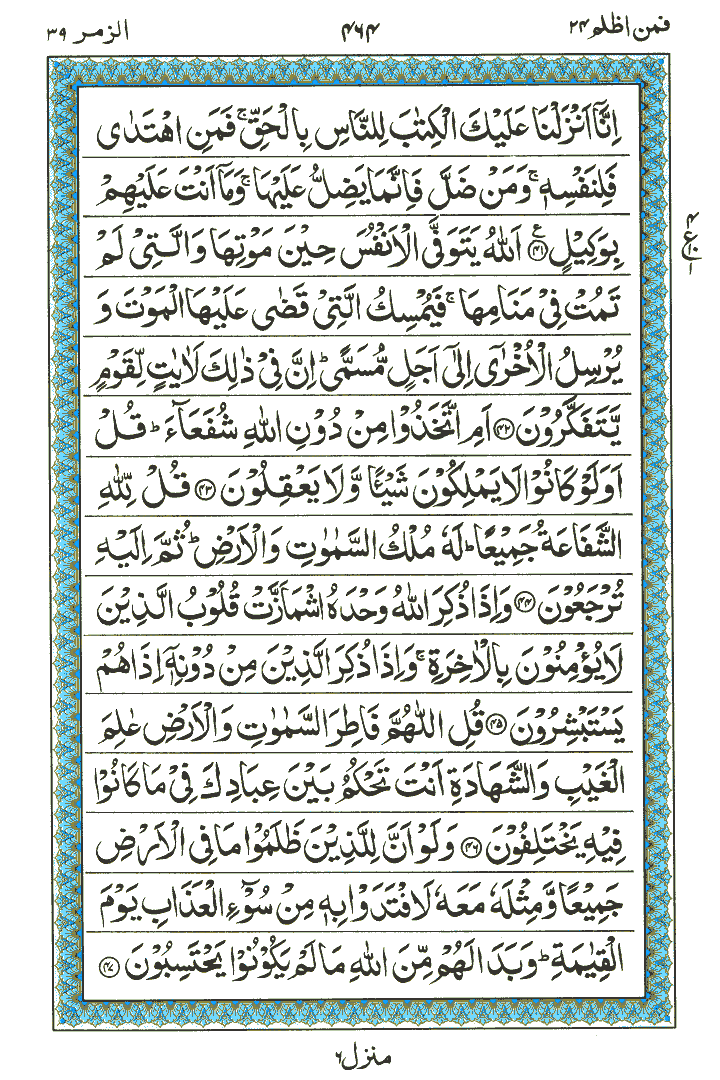 فمن اظلم ۲۴ ۴۶۴ الزمر ۳۹
اِنَّاۤ اَنْزَلْنَا عَلَيْكَ الْكِتٰبَ لِلنَّاسِ بِالْحَقِّ ۚ فَمَنِ اهْتَدٰى
فَلِنَفْسِهٖ ۚ وَمَنْ ضَلَّ فَاِنَّمَا يَضِلُّ عَلَيْهَا ۚ وَمَاۤ اَنْتَ عَلَيْهِمْ
بِوَكِيْلٍ ۴۱ ع اَللّٰهُ يَتَوَفَّى الْاَنْفُسَ حِيْنَ مَوْتِهَا وَالَّتِيْ لَمْ
۴ ع ۱۰ ۱
تَمُتْ فِيْ مَنَامِهَا ۚ فَيُمْسِكُ الَّتِيْ قَضٰى عَلَيْهَا الْمَوْتَ وَ
يُرْسِلُ الْاُخْرٰۤى اِلٰۤى اَجَلٍ مُّسَمًّى ؕ اِنَّ فِيْ ذٰلِكَ لَاٰيٰتٍ لِّقَوْمٍ
يَّتَفَكَّرُوْنَ ۴۲ اَمِ اتَّخَذُوْا مِنْ دُوْنِ اللّٰهِ شُفَعَآءَ ؕ قُلْ
اَوَلَوْ كَانُوْا لَا يَمْلِكُوْنَ شَيْئًا وَّلَا يَعْقِلُوْنَ ۴۳ قُلْ لِّلّٰهِ
الشَّفَاعَةُ جَمِيْعًا ؕ لَهٗ مُلْكُ السَّمٰوٰتِ وَالْاَرْضِ ؕ ثُمَّ اِلَيْهِ
تُرْجَعُوْنَ ۴۴ وَاِذَا ذُكِرَ اللّٰهُ وَحْدَهُ اشْمَاَزَّتْ قُلُوْبُ الَّذِيْنَ
لَا يُؤْمِنُوْنَ بِالْاٰخِرَةِ ۚ وَاِذَا ذُكِرَ الَّذِيْنَ مِنْ دُوْنِهٖۤ اِذَا هُمْ
يَسْتَبْشِرُوْنَ ۴۵ قُلِ اللّٰهُمَّ فَاطِرَ السَّمٰوٰتِ وَالْاَرْضِ عٰلِمَ
الْغَيْبِ وَالشَّهَادَةِ اَنْتَ تَحْكُمُ بَيْنَ عِبَادِكَ فِيْ مَا كَانُوْا
فِيْهِ يَخْتَلِفُوْنَ ۴۶ وَلَوْ اَنَّ لِلَّذِيْنَ ظَلَمُوْا مَا فِي الْاَرْضِ
جَمِيْعًا وَّمِثْلَهٗ مَعَهٗ لَافْتَدَوْا بِهٖ مِنْ سُوْٓءِ الْعَذَابِ يَوْمَ
الْقِيٰمَةِ ؕ وَبَدَا لَهُمْ مِّنَ اللّٰهِ مَا لَمْ يَكُوْنُوْا يَحْتَسِبُوْنَ ۴۷
منزل ۶